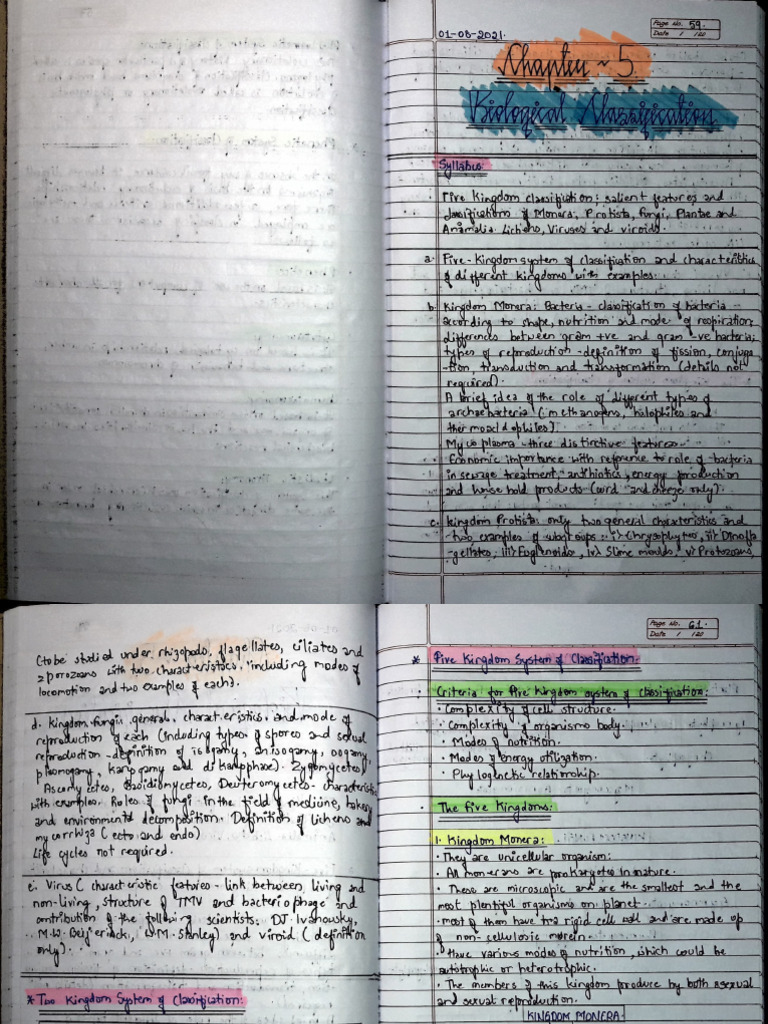 01-08-2021.
Page No. 59.
Date / /20
Chapter ~ 5
Biological Classification
Syllabus:
Five Kingdom classification: salient features and
classification of Monera, Protista, Fungi, Plantae and
Animalia. Lichens, Viruses and viroids.
a. Five-Kingdom system of classification and characteristics
of different kingdoms with examples.
b. Kingdom Monera: Bacteria - classification of bacteria
according to shape, nutrition and mode of respiration;
differences between gram +ve and gram -ve bacteria;
types of reproduction - definition of fission, conjuga
-tion, transduction and transformation (details not
required).
A brief idea of the role of different types of
archaebacteria (methanogens, halophiles and
Mycoplasma - three distinctive features.
Economic importance with reference to role of bacteria
in sewage treatment, antibiotics, energy production
and household products (curd and cheese only).
c. Kingdom Protista: only two general characteristics and
two examples of subgroups: i> Chrysophytes, ii> Dinofla
-gellates, iii> Euglenoids, iv> Slime moulds, v> Protozoans,
(to be studied under rhizopods, flagellates, ciliates and
sporozoans with two characteristics, including modes of
locomotion and two examples of each).
d. Kingdom fungi: general characteristics and mode of
reproduction of each (including types of spores and sexual
reproduction - definition of isogamy, anisogamy, oogamy,
plasmogamy, karyogamy and dikaryophase). Zygomycetes,
Ascomycetes, Basidiomycetes, Deuteromycetes - characteristics
with examples. Roles of fungi in the field of medicine, bakery
and environmental decomposition. Definition of Lichens and
mycorrhiza (ecto and endo)
Life cycles not required.
e. Virus (characteristic features - link between living and
non-living, structure of TMV and bacteriophage and
contribution of the following scientists: D.J. Ivanowsky,
M.W. Beijerinck, W.M. Stanley) and viroid (definition
only).
* Two Kingdom System of Classification:
Page No. 61.
Date / /20
* Five Kingdom System of Classification:
• Criteria for Five Kingdom system of classification:
• Complexity of cell structure.
• Complexity of organisms body.
• Modes of nutrition.
• Modes of energy utilization.
• Phylogenetic relationship.
• The Five Kingdoms:
1. Kingdom Monera:
• They are unicellular organism.
• All monerans are prokaryotes in nature.
• These are microscopic and are the smallest and the
most plentiful organisms on planet.
• most of them have tra rigid cell wall and are made up
of non-cellulosic murein.
• Have various modes of nutrition, which could be
autotrophic or heterotrophic.
• The members of this kingdom produce by both asexual
and sexual reproduction.
KINGDOM MONERA